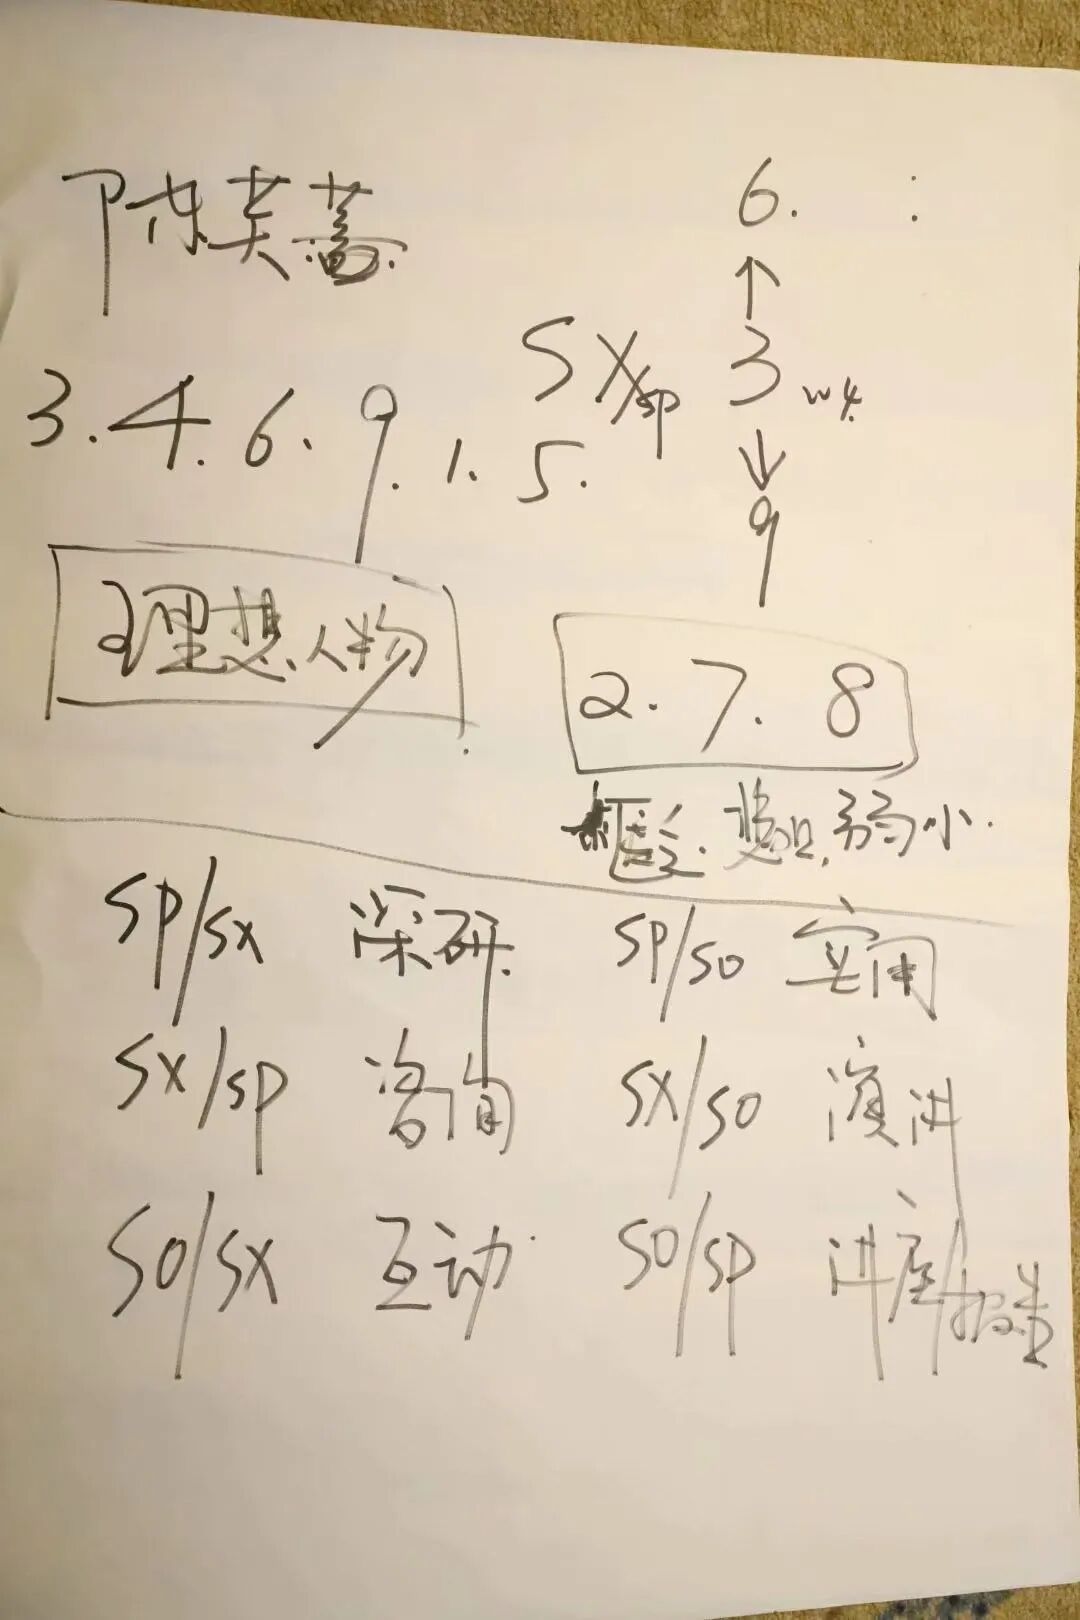 陈芙蓉
6.
↑
3.4.6.9.1.5.
SX/sp 3 w4
↓
9
理想人物
2.7.8
弱小.
SP/SX 深研 SP/SO 实用
SX/SP 咨询 SX/SO 演讲
SO/SX 互动 SO/SP 讲座/报告